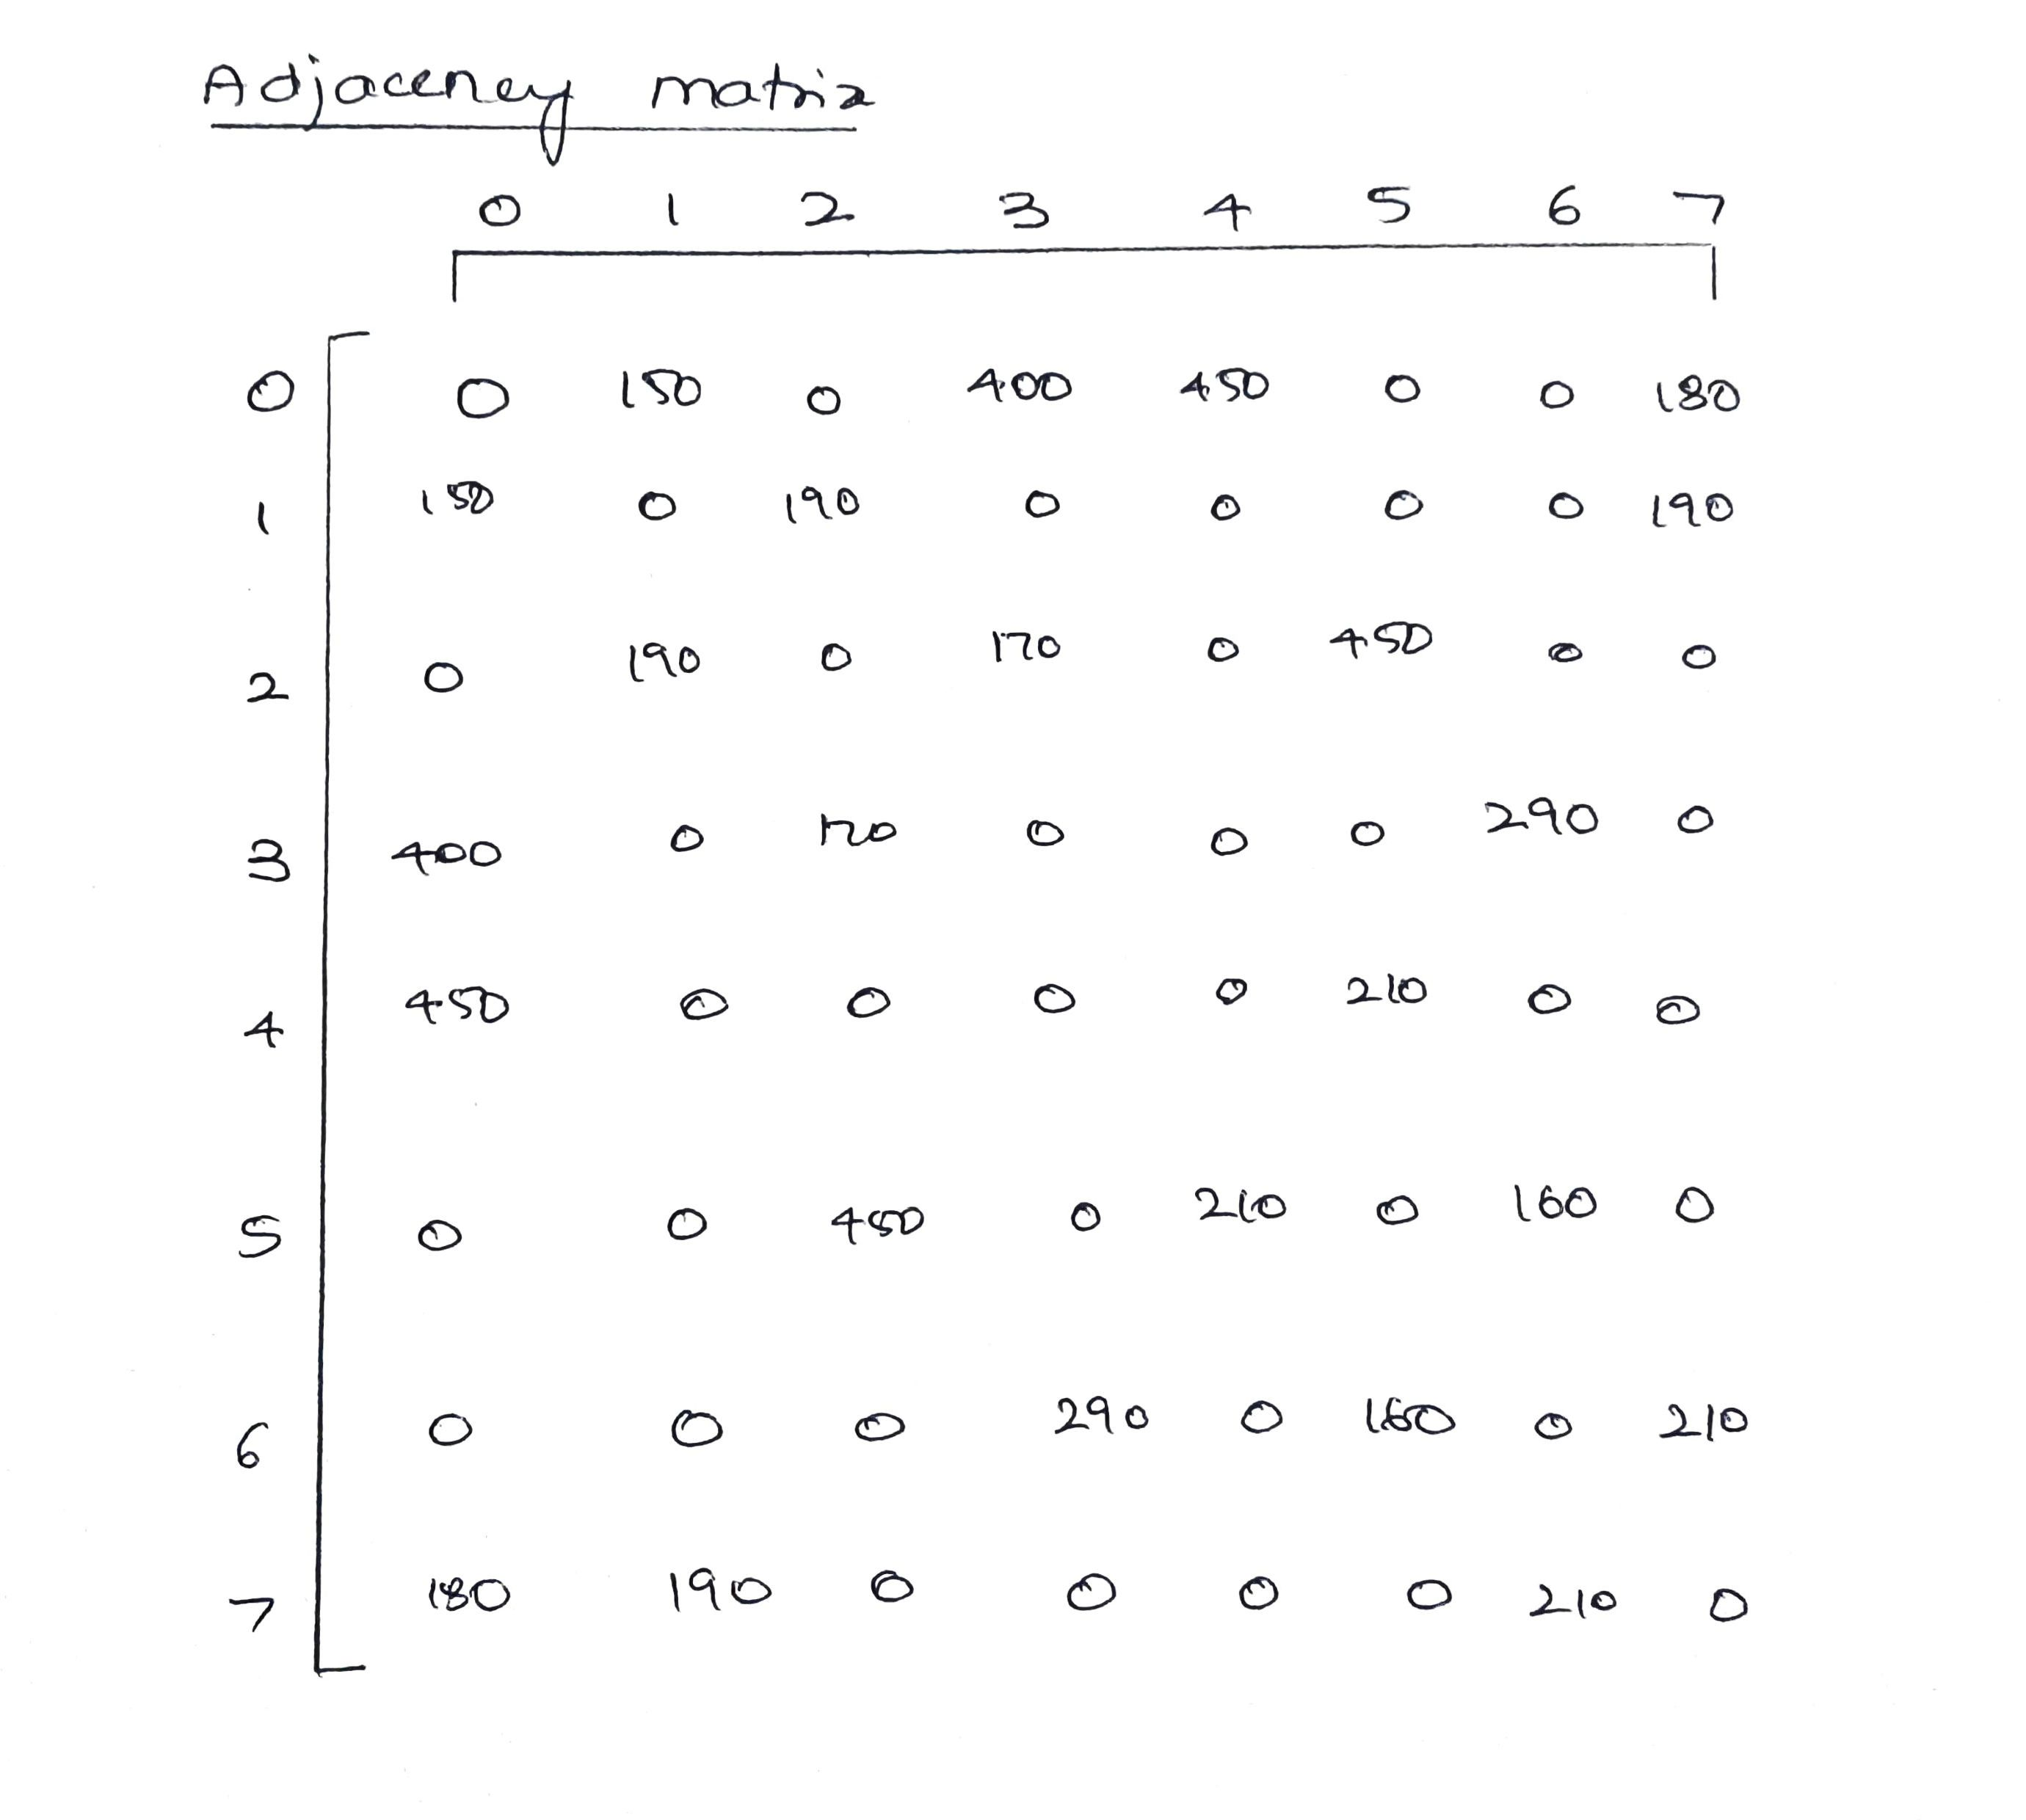 Adjacency matrix
0 1 2 3 4 5 6 7
0 0 150 0 400 450 0 0 180
1 150 0 190 0 0 0 0 190
2 0 190 0 170 0 450 0 0
3 400 0 170 0 0 0 290 0
4 450 0 0 0 0 210 0 0
5 0 0 450 0 210 0 160 0
6 0 0 0 290 0 160 0 210
7 180 190 0 0 0 0 210 0